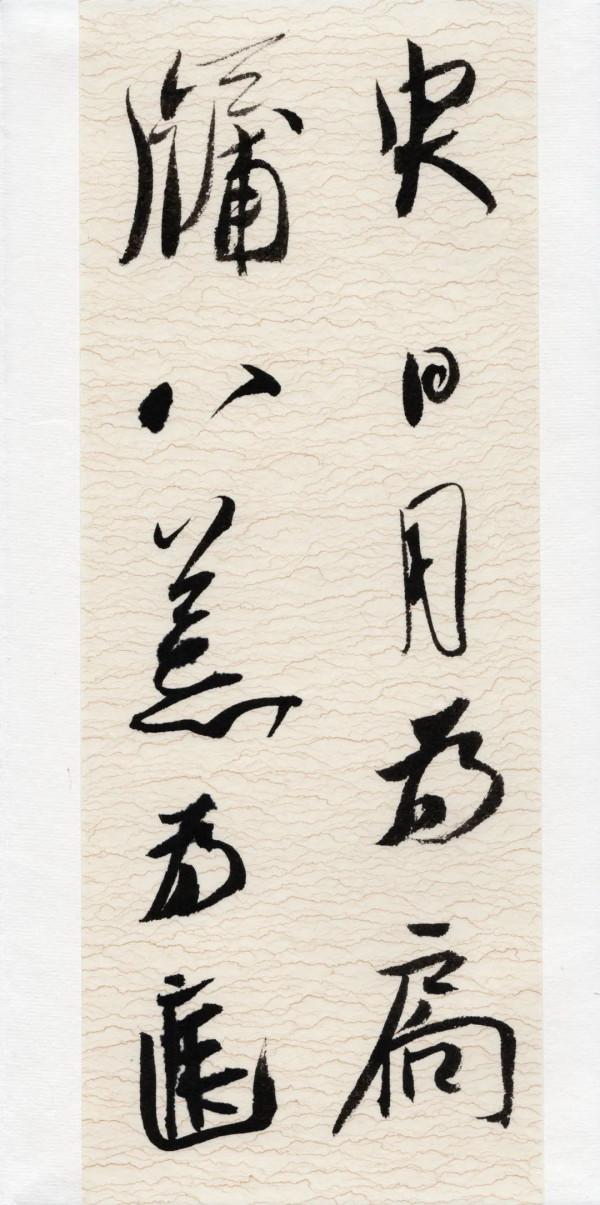 臾日月為扃
牖八荒為庭